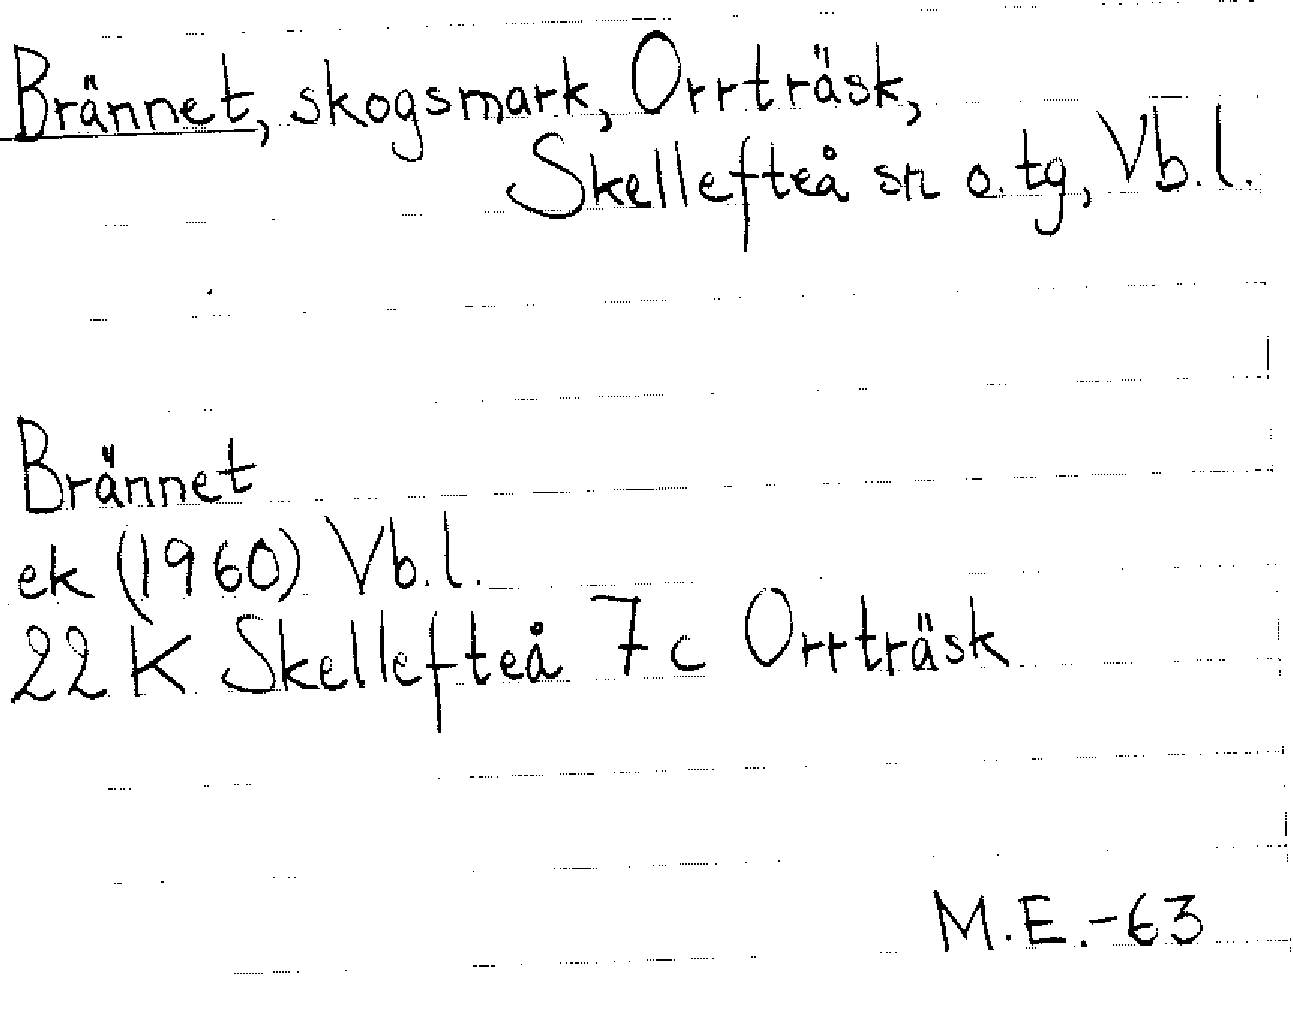 Brännet, skogsmark, Orrträsk,
Skellefteå sn o. tg, Vb. l.
Brännet
ek (1960) Vb. l.
22 K Skellefteå 7c Orrträsk
M.E.-63